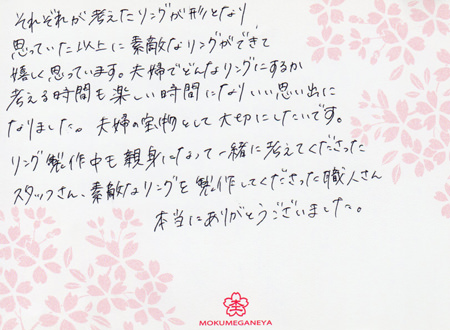 それぞれが考えたリングが形となり
思っていた以上に素敵なリングができて
嬉しく思っています。夫婦でどんなリングにするか
考える時間も楽しい時間になりいい思い出に
なりました。夫婦の宝物として大切にしたいです。
リング製作中も親身になって一緒に考えてくださった
スタッフさん、素敵なリングを製作してくださった職人さん
本当にありがとうございました。
MOKUMEGANEYA